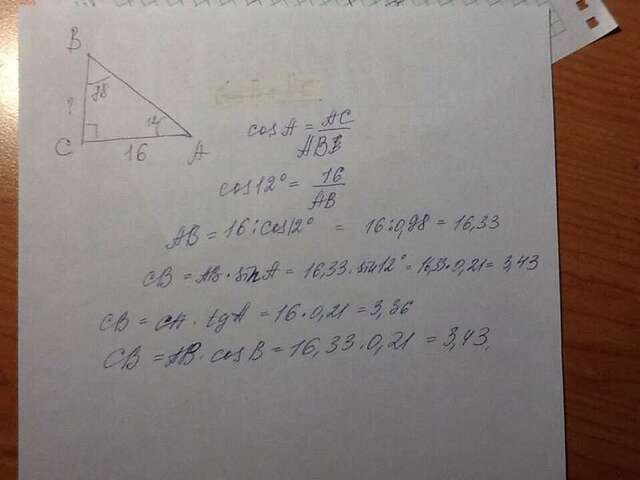 B
78
?
12
C
16
A
cos A = AC / AB
cos 12° = 16 / AB
AB = 16 : cos 12° = 16 : 0,98 = 16,33
CB = AB · sin A = 16,33 · sin 12° = 16,33 · 0,21 = 3,43
CB = CA · tg A = 16 · 0,21 = 3,36
CB = AB · cos B = 16,33 · 0,21 = 3,43.